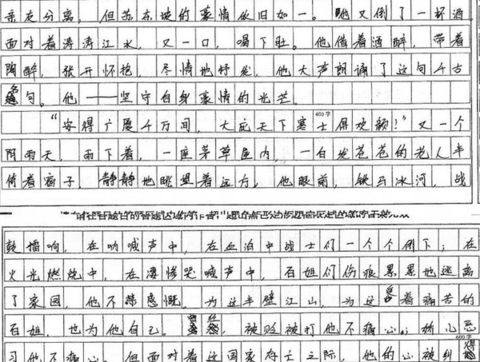 亲走分离，但苏东坡的豪情依旧如一。他又倒了一杯酒
面对着涛涛江水，又一口，喝下肚。他借着酒醉，带着
陶醉，张开怀抱，尽情地抒发，他大声朗诵了这句千古
名句。他——坚守自身豪情的光芒。
400字
“安得广厦千万间，大庇天下寒士俱欢颜！”又一个
阴雨天，雨下着，一座茅草屋内，一白发苍苍的老人半
倚着窗子，静静地眺望着远方，他眼前，铁马冰河，战
鼓擂响，在呐喊声中，在血泊中战士们一个个倒下；在
火光燃烧中，在凄惨哭喊声中，百姓们伤痕累累地逃离
了家园，他不禁感慨，为这半壁江山，为这着痛苦的
百姓，也为他自己。被贬被打他不痛心，幼儿恶
习他不痛心。但面对着这国家存亡之际，他的心被纠